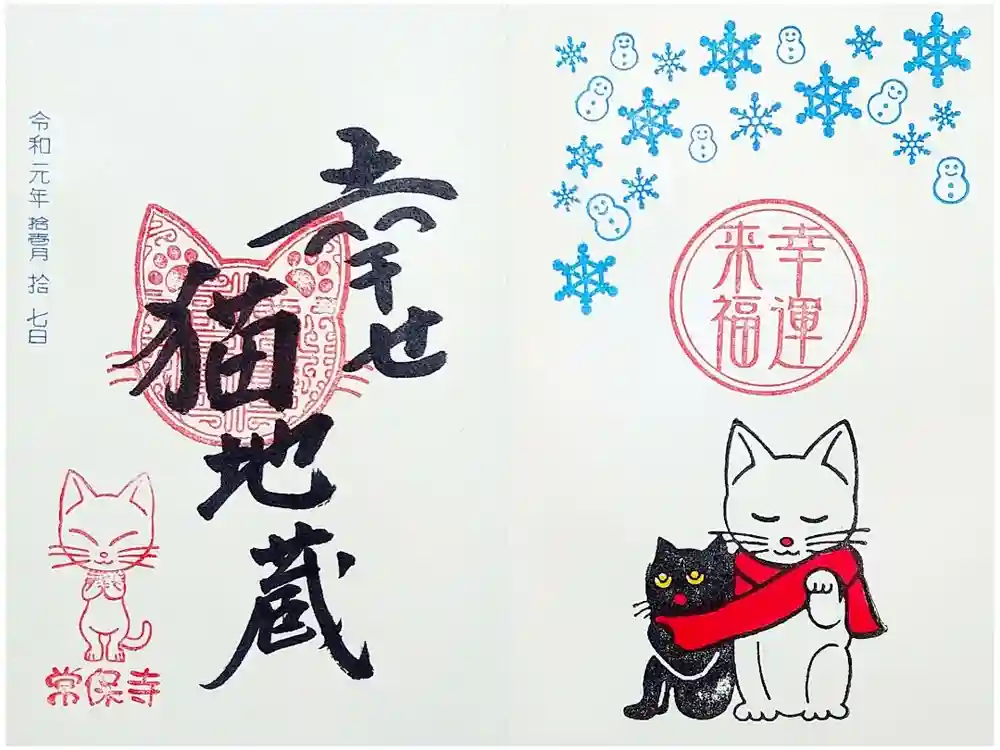 幸運
来福
幸せ
猫地蔵
令和元年拾壹月拾七日
常保寺